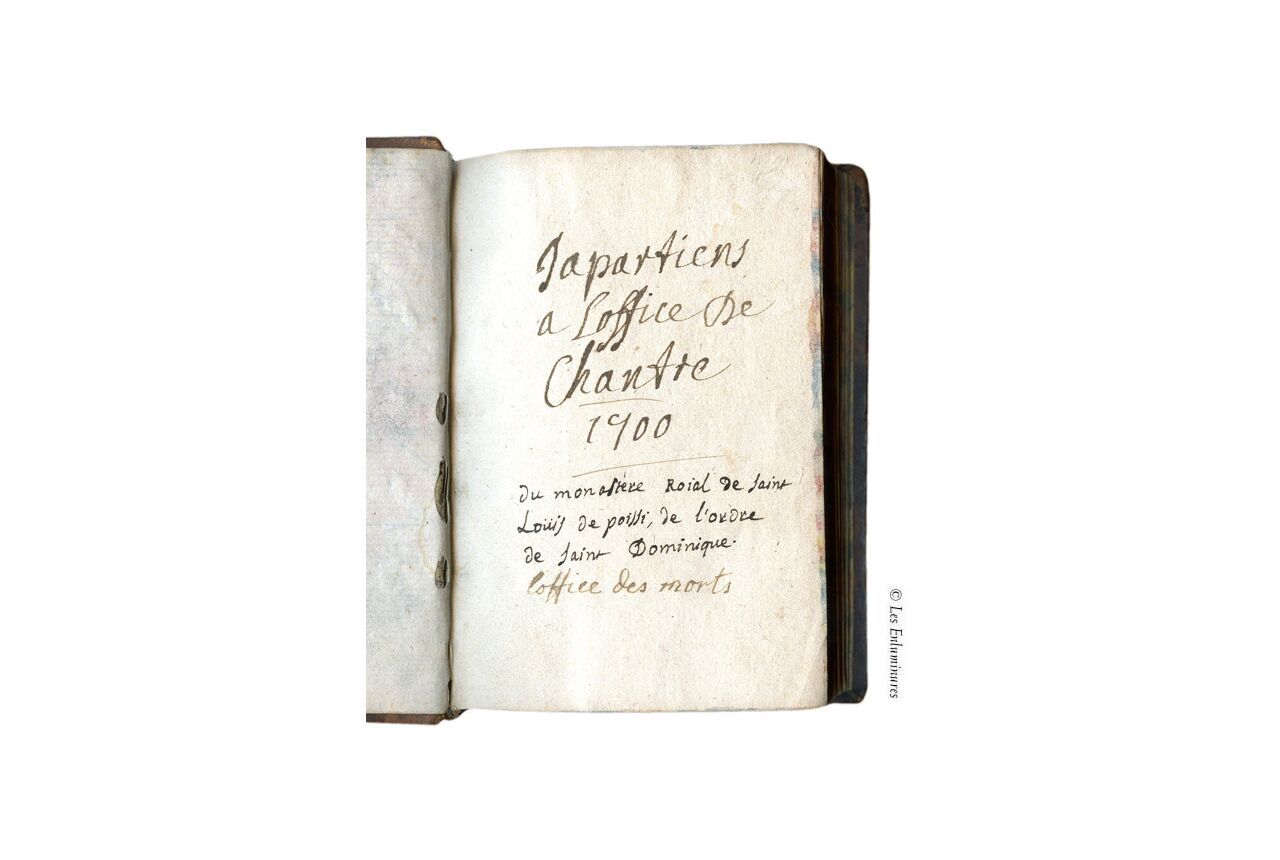 Japartiens
a Loffice De
Chantre
1700
Du monastère Roial de saint
Louis de poissi, de l'ordre
de saint Dominique.
Loffice des morts
© Les Enluminures